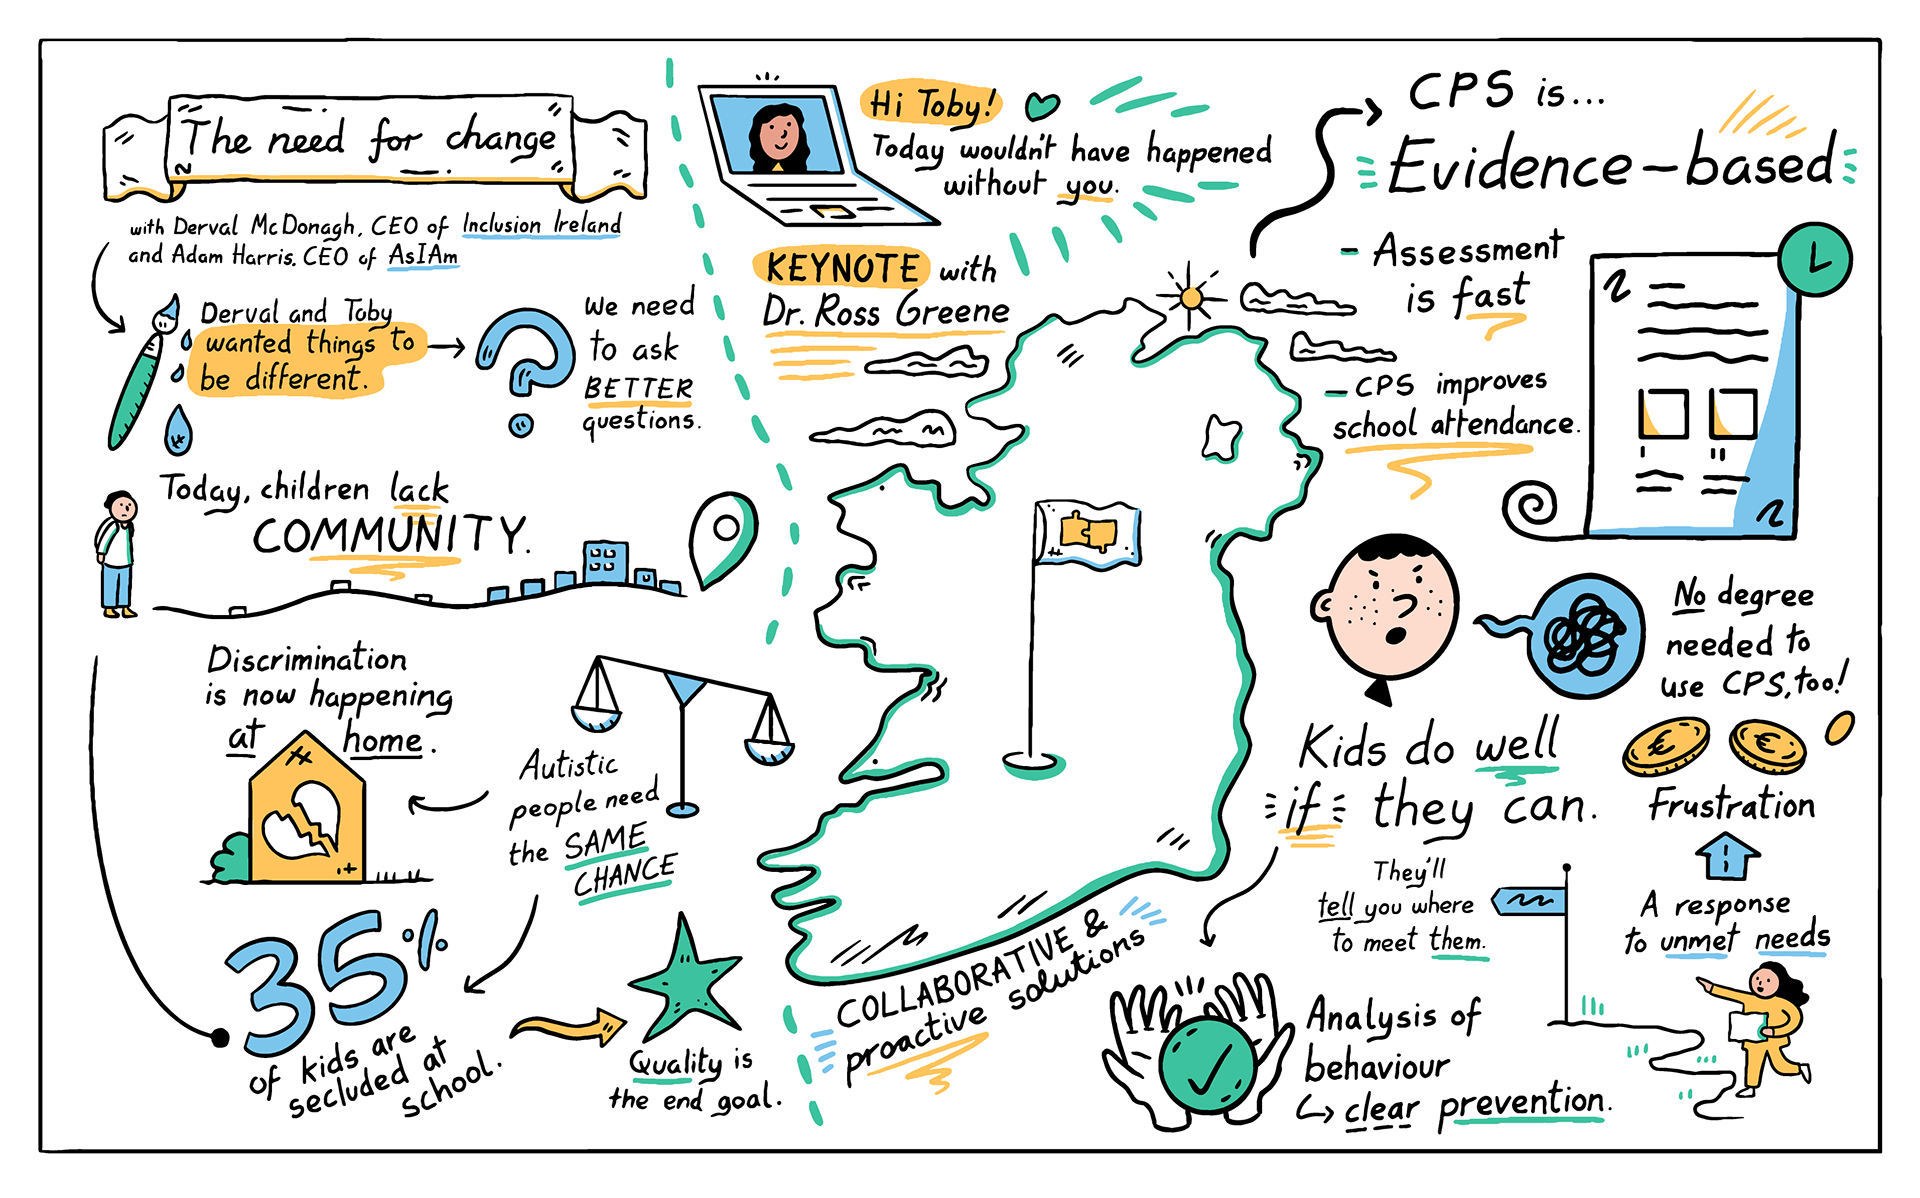 The need for change
with Derval McDonagh, CEO of Inclusion Ireland
and Adam Harris, CEO of AsIAm
Derval and Toby
wanted things to
be different.
We need
to ask
BETTER
questions.
Today, children lack
COMMUNITY.
Discrimination
is now happening
at home.
Autistic
people need
the SAME
CHANCE
35%
of kids are
secluded at
school.
Quality is
the end goal.
Hi Toby!
Today wouldn't have happened
without you.
KEYNOTE with
Dr. Ross Greene
COLLABORATIVE &
proactive solutions
CPS is...
Evidence-based
- Assessment
is fast
- CPS improves
school attendance.
No degree
needed to
use CPS, too!
€ €
Kids do well
if they can.
They'll
tell you where
to meet them.
Frustration
A response
to unmet needs
Analysis of
behaviour
clear prevention.